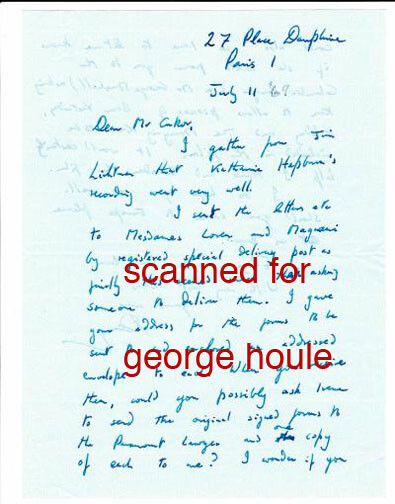 27 Place Dauphine
Paris 1
July 11 '69
Dear Mr Cukor,
I gather from Jim
Lichtner that Katharine Hepburn's
recording went very well.
I sent the letters etc
to Mesdames Loren and Magnani
by registered special delivery post as
finally this seemed than asking
scanned for
someone to deliver them. I gave
your address for the forms to be
sent to and enclosed an addressed
george houle
envelope to each. When you receive
them, could you possibly ask Irene
to send the original signed forms to
the Paramount lawyer and one copy
of each to me? I wonder if you